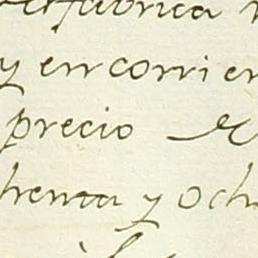 fabrica
y en corrien
precio de
henta y och